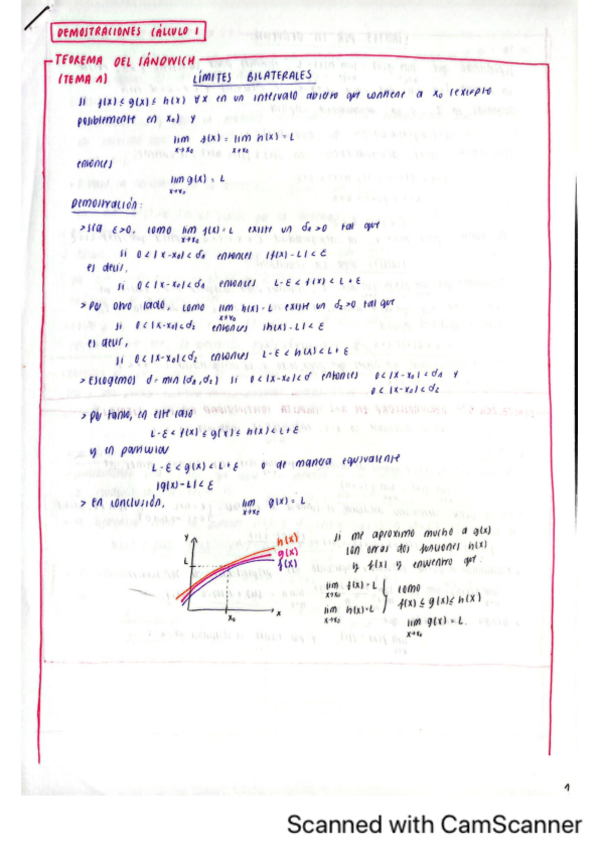 DEMOSTRACIONES CÁLCULO 1
TEOREMA DEL SÁNDWICH
(TEMA 1)
LÍMITES BILATERALES
Si f(x) ≤ g(x) ≤ h(x) ∀x en un intervalo abierto que contiene a x₀ (excepto
posiblemente en x₀) y
lim f(x) = lim h(x) = L
x→x₀ x→x₀
entonces
lim g(x) = L
x→x₀
Demostración:
> Sea ε>0, como lim f(x) = L existe un d₁>0 tal que
x→x₀
si 0<|x-x₀|<d₁ entonces |f(x)-L|<ε
es decir,
si 0<|x-x₀|<d₁ entonces L-ε<f(x)<L+ε
> Por otro lado, como lim h(x) = L existe un d₂>0 tal que
x→x₀
si 0<|x-x₀|<d₂ entonces |h(x)-L|<ε
es decir,
si 0<|x-x₀|<d₂ entonces L-ε<h(x)<L+ε
> Escogemos d = min (d₁,d₂) si 0<|x-x₀|<d entonces 0<|x-x₀|<d₁ y
0<|x-x₀|<d₂
> Por tanto, en este caso
L-ε<f(x)≤g(x)≤h(x)<L+ε
y en particular
L-ε<g(x)<L+ε o de manera equivalente
|g(x)-L|<ε
> En conclusión, lim g(x) = L
x→x₀
y
h(x)
g(x)
f(x)
L
x₀
x
si me aproximo mucho a g(x)
con otras dos funciones h(x)
y f(x) y encuentro que:
lim f(x) = L
x→x₀
lim h(x) = L
x→x₀
como
f(x) ≤ g(x) ≤ h(x)
lim g(x) = L.
x→x₀
1
Scanned with CamScanner